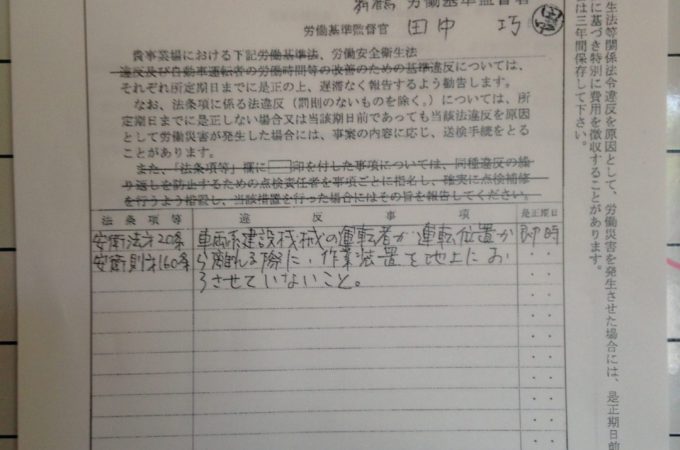 労働基準監督署
労働基準監督官 田中 巧
貴事業場における下記労働基準法、労働安全衛生法
違反及び自動車運転者の労働時間等の改善のための基準違反については、
それぞれ所定期日までに是正の上、遅滞なく報告するよう勧告します。
なお、法条項に係る法違反（罰則のないものを除く。）については、所
定期日までに是正しない場合又は当該期日前であっても当該法違反を原因
として労働災害が発生した場合には、事案の内容に応じ、送検手続をとる
ことがあります。
また、「法条項等」欄に□印を付した事項については、同種違反の繰
り返しを防止するための点検責任者を事項ごとに指名し、確実に点検補修
を行うよう措置し、当該措置を行った場合にはその旨を報告してください。
法条項等 違反事項 是正期日
安衛法才20条 車両系建設機械の運転者が運転位置か 即時
安衛則才160条 ら離れる際に、作業装置を地上にお
ろさせていないこと。
生法等関係法令違反を原因として、労働災害を発生させた場合には、是正期日前
に基づき特別に費用を徴収することがあります。
は三年間保存して下さい。